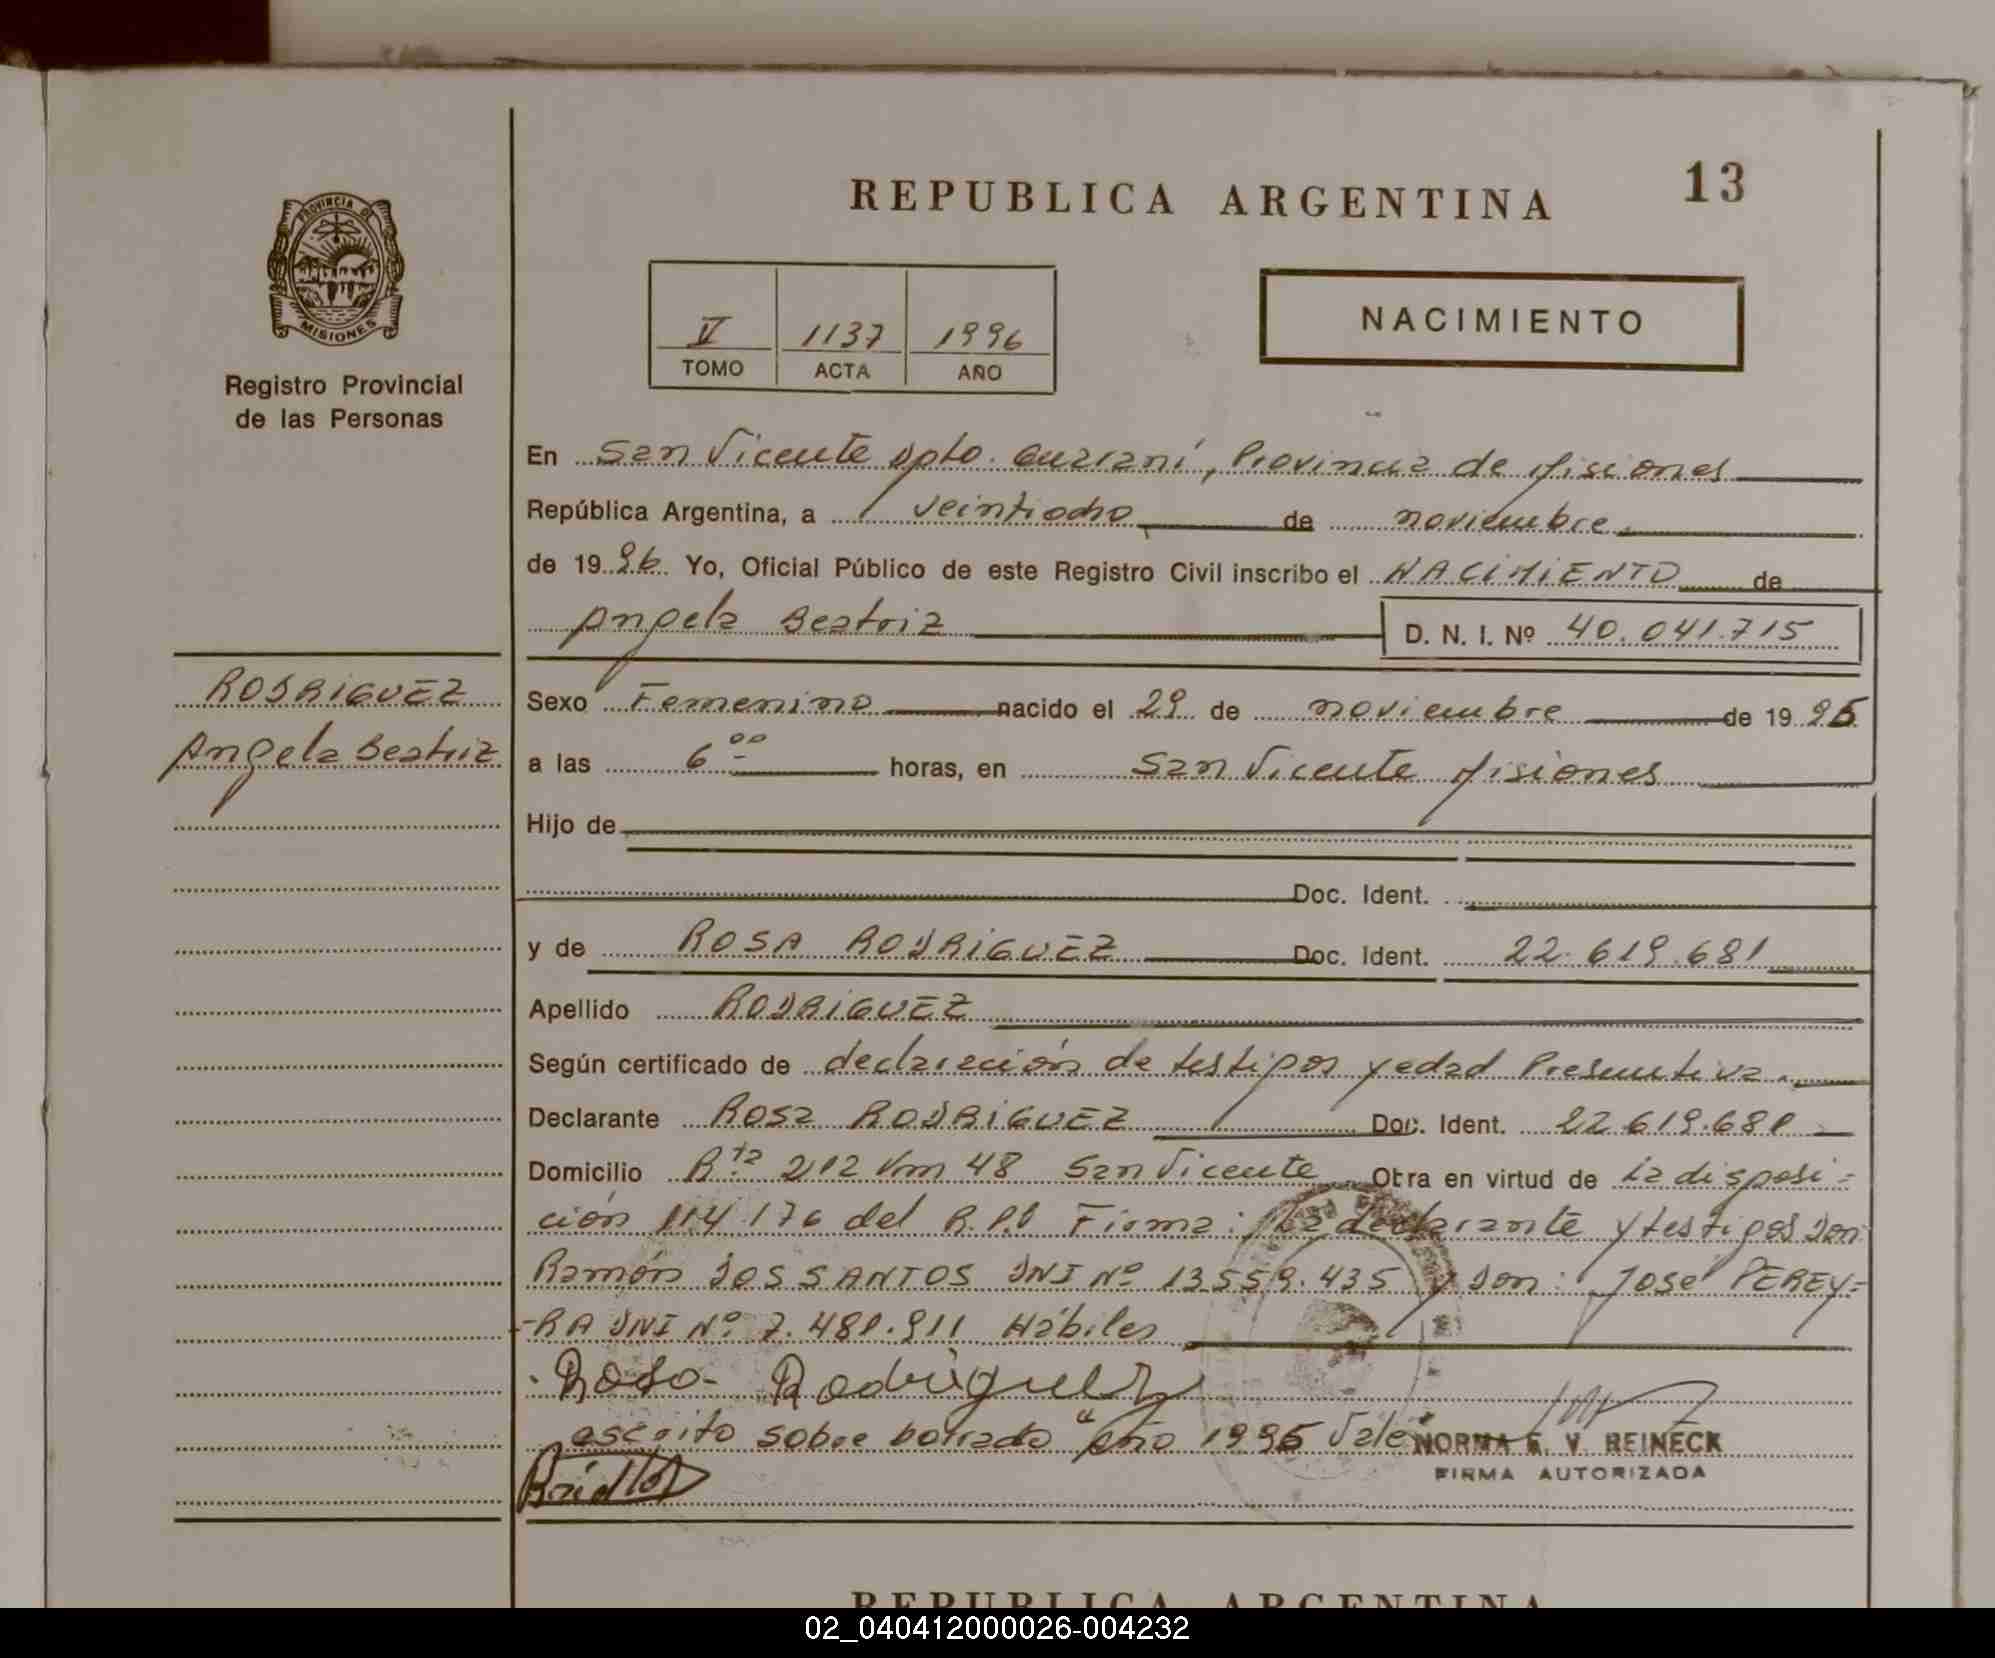 REPUBLICA ARGENTINA 13
PROVINCIA DE
MISIONES
Registro Provincial
de las Personas
V 1137 1996
TOMO ACTA AÑO
NACIMIENTO
En San Vicente Dpto. Guaraní, Provincia de Misiones
República Argentina, a veintiocho de noviembre
de 1996 Yo, Oficial Público de este Registro Civil inscribo el NACIMIENTO de
Angela Beatriz D. N. I. Nº 40.041.715
RODRIGUEZ
Angela Beatriz
Sexo Femenino nacido el 29 de noviembre de 1995
a las 6 00 horas, en San Vicente Misiones
Hijo de
Doc. Ident.
y de ROSA RODRIGUEZ Doc. Ident. 22.619.681
Apellido RODRIGUEZ
Según certificado de declaración de testigos y edad Presuntiva.
Declarante Rosa RODRIGUEZ Doc. Ident. 22.619.681
Domicilio Rta 212 Km 48 San Vicente Otra en virtud de la disposi=
ción 114/176 del R.P.P Firma: La declarante y testigos Don:
Ramón DOS SANTOS DNI Nº 13.559.435 y Don: José PEREY=
-RA DNI Nº 7.481.911 Hábiles
Rosa Rodriguez
escrito sobre borrado "año 1995 Vale
NORMA E. V. REINECK
FIRMA AUTORIZADA
REPUBLICA ARGENTINA
02_040412000026-004232